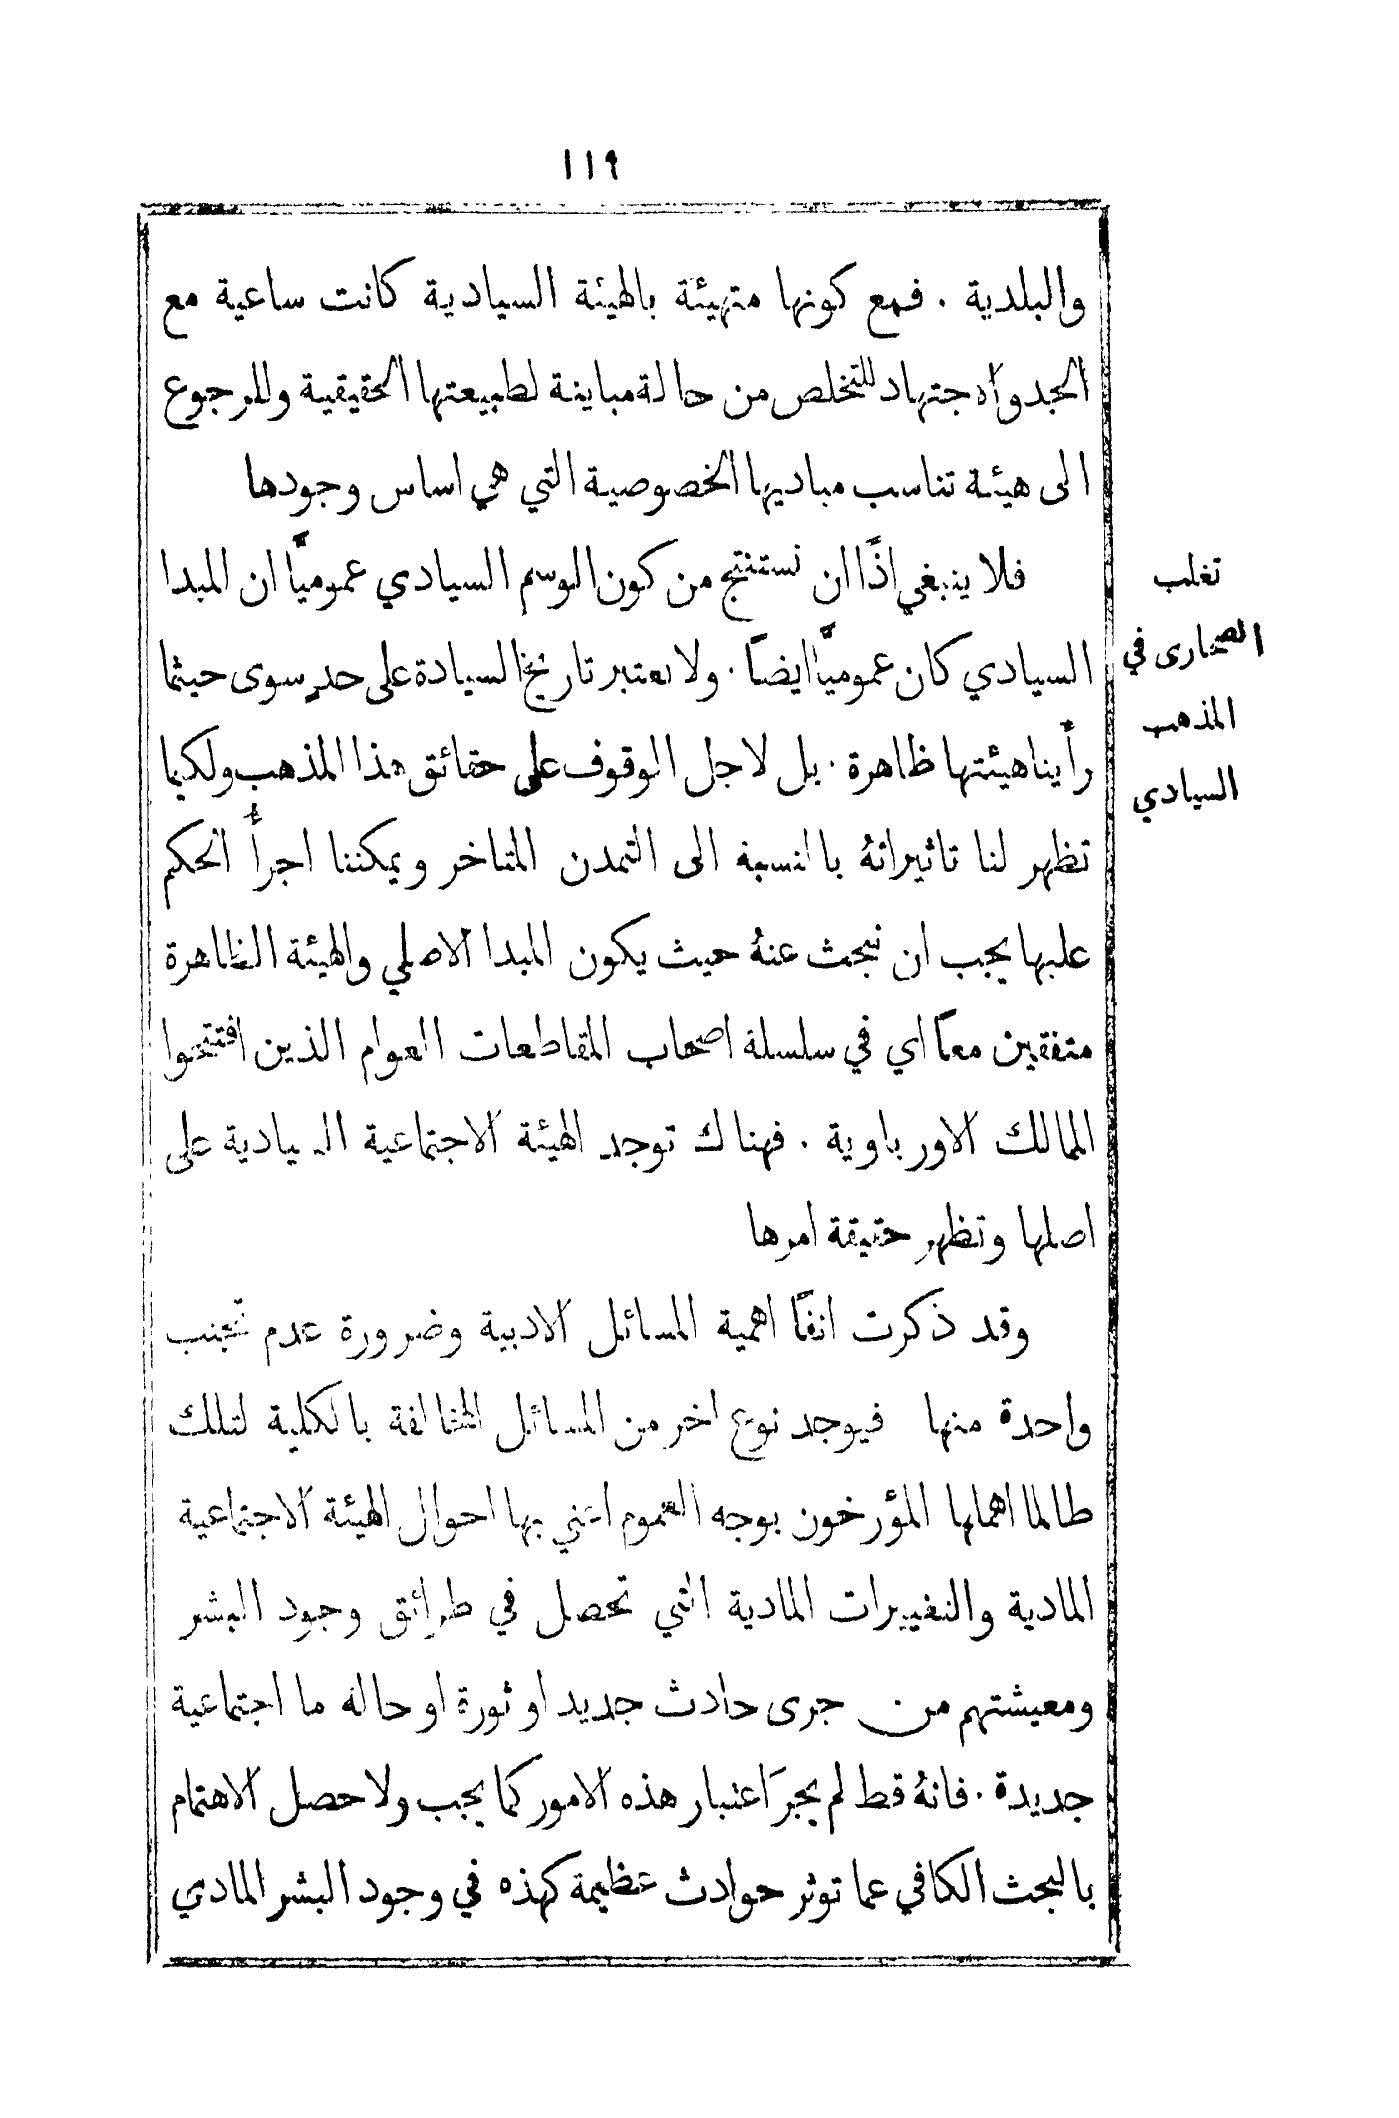 ١١٩
والبلدية . فمع كونها متهيئة بالهيئة السيادية كانت ساعية مع
الجد والاجتهاد للتخلص من حالة مباينة لطبيعتها الحقيقية وللرجوع
الى هيئة تناسب مباديها الخصوصية التي هي اساس وجودها
فلا ينبغي اذًا ان نستنتج من كون الوسم السيادي عموميًّا ان المبدا
السيادي كان عموميًّا ايضاً . ولا يعتبر تاريخ السيادة على حدٍ سوى حيثما
رأَينا هيئتها ظاهرة . بل لاجل الوقوف على حقائق هذا المذهب ولكيما
تظهر لنا تاثيراتهُ بالنسبة الى التمدن المتاخر ويمكننا اجرأ الحكم
عليها يجب ان نبحث عنهُ حيث يكون المبدا الاصلي والهيئة الظاهرة
متفقين معاً اي في سلسلة اصحاب المقاطعات العوام الذين افتتحوا
الممالك الاورباوية . فهناك توجد الهيئة الاجتماعية السيادية على
اصلها وتظهر حقيقة امرها
وقد ذكرت انفًا اهمية المسائل الادبية وضرورة عدم تجنب
واحدة منها فيوجد نوع اخر من المسائل المخالفة بالكلية لتلك
طالما اهملها المؤرخون بوجه العموم اعني بها احوال الهيئة الاجتماعية
المادية والتغييرات المادية التي تحصل في طرائق وجود البشر
ومعيشتهم من جرى حادث جديد او ثورة او حالة ما اجتماعية
جديدة . فانهُ قط لم يجرَ اعتبار هذه الامور كما يجب ولا حصل الاهتمام
بالبحث الكافي عما توثر حوادث عظيمة كهذه في وجود البشر المادي
تغلب
الصحارى في
المذهب
السيادي